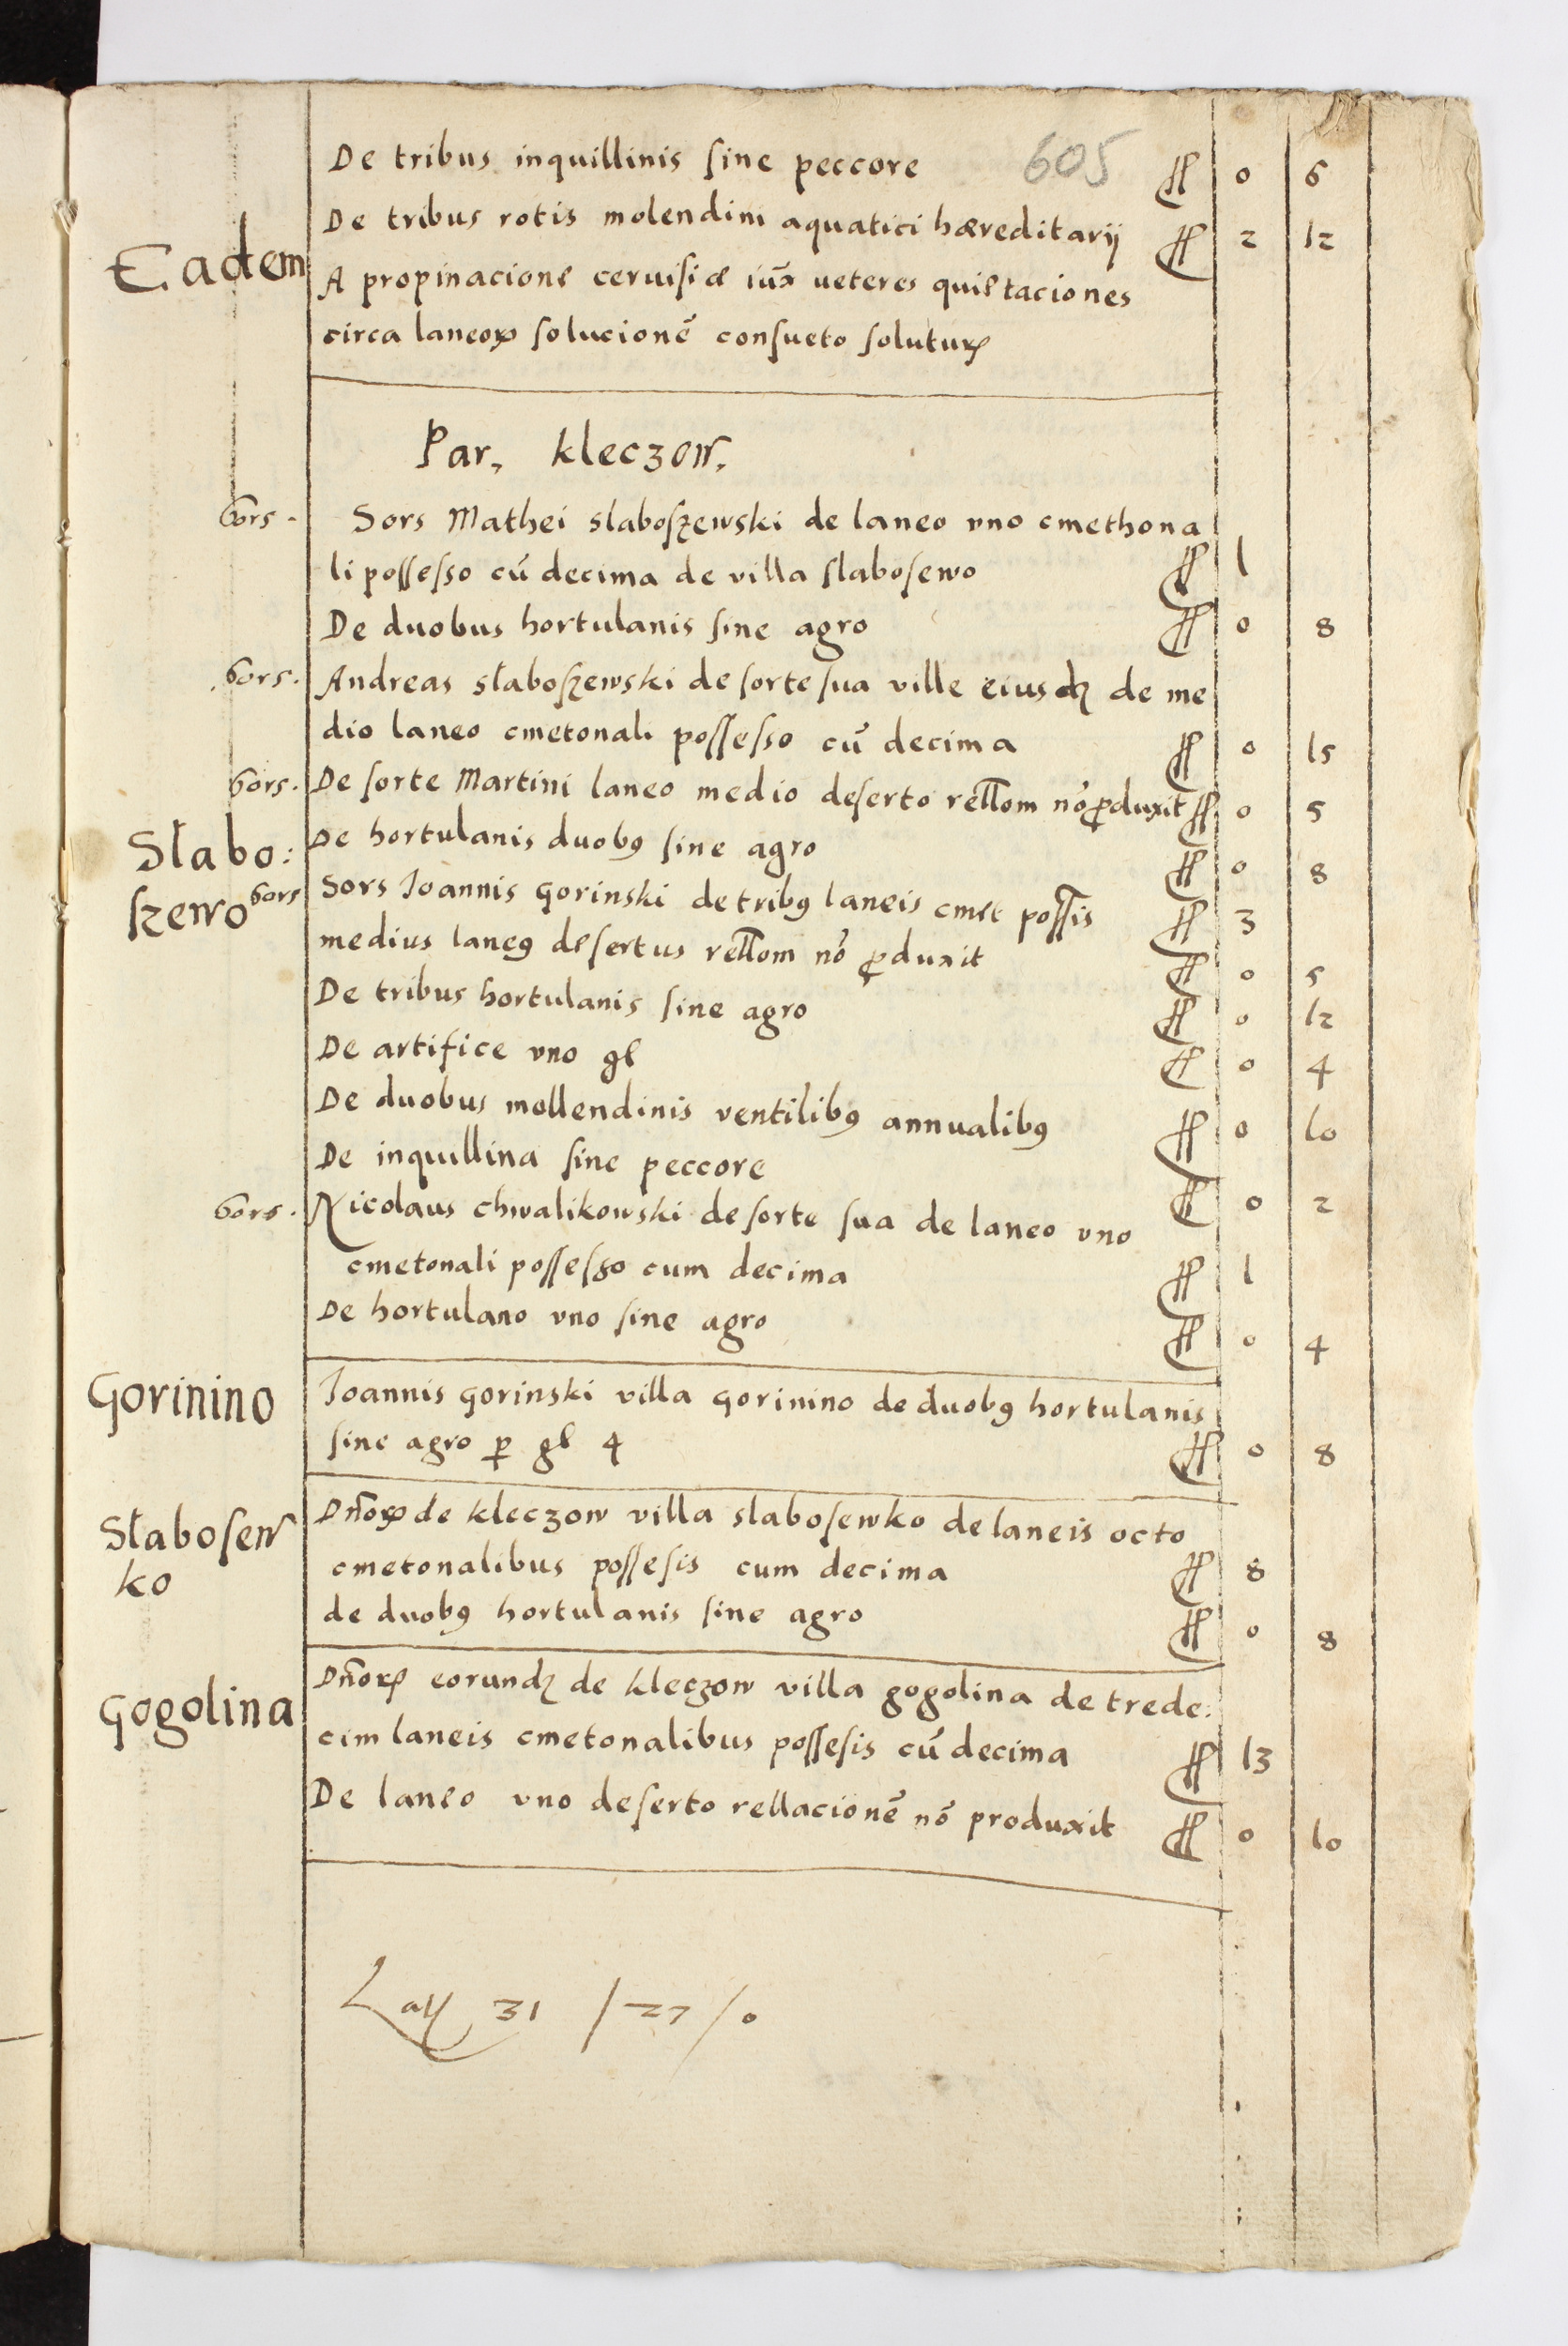 605
De tribus inquillinis sine peccore ff 0 6
De tribus rotis molendini aquatici hæreditarij ff 2 12
Eadem
A propinacione ceruisiæ iux̃ ueteres quietaciones
circa laneoꝝ solucionẽ consueto solutuꝝ
Par. kleczow.
Sors Mathei slaboszewski de laneo vno cmethona
li possesso cũ decima de villa slabosewo ff 1
De duobus hortulanis sine agro ff 0 8
Sors. Andreas slaboszewski de sorte sua ville eiusdꝫ de me
dio laneo cmetonali possesso cũ decima ff 0 15
Sors. De sorte Martini laneo medio deserto rellom nõ ꝓduxit ff 0 5
Slabo:
szewo
De hortulanis duobꝰ sine agro ff 0 8
Sors Sors Joannis gorinski de tribꝰ laneis cmet possis ff 3
medius laneꝰ desertus rellom nõ ꝓduxit ff 0 5
De tribus hortulanis sine agro ff 0 12
De artifice vno gl ff 0 4
De duobus mollendinis ventilibꝰ annualibꝰ ff 0 10
De inquillina sine peccore ff 0 2
Sors. Nicolaus chwalikowski de sorte sua de laneo vno
cmetonali possesso cum decima ff 1
De hortulano vno sine agro ff 0 4
Gorinino
Joannis gorinski villa gorinino de duobꝰ hortulanis
sine agro ꝑ gl 4 ff 0 8
Slabosew
ko
Dñoꝝ de kleczow villa slabosewko de laneis octo
cmetonalibus possesis cum decima ff 8
de duobꝰ hortulanis sine agro ff 0 8
Gogolina
Dñoꝝ eorundꝫ de kleczow villa gogolina de trede:
cim laneis cmetonalibus possesis cũ decima ff 13
De laneo vno deserto rellacionẽ nõ produxit ff 0 10
31 / 27 / 0